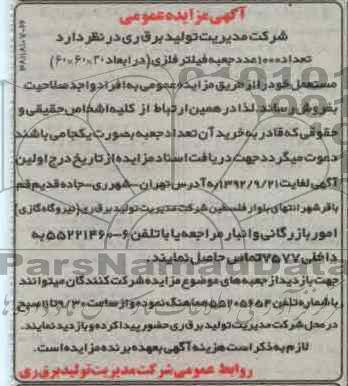 آگهی مزایده عمومی
شرکت مدیریت تولید برق ری در نظر دارد
تعداد ۱۰۰۰ عدد جعبه فیلتر فلزی (در ابعاد ۳۰×۶۰×۶۰)
مستعمل خود را از طریق مزایده عمومی به افراد واجد صلاحیت
بفروش رساند. لذا در همین ارتباط از کلیه اشخاص حقیقی و
حقوقی که قادر به خرید آن تعداد جعبه بصورت یکجا می باشند
دعوت میگردد جهت دریافت اسناد مزایده از تاریخ درج اولین
آگهی لغایت ۱۳۹۲/۹/۲۱ به آدرس تهران-شهرری-جاده قدیم قم
باقرشهر انتهای بلوار فلسطین شرکت مدیریت تولید برق ری (نیروگاه گازی)
امور بازرگانی و انبار مراجعه یا با تلفن ۶-۵۵۲۲۱۴۶۰ به
داخلی ۷۵۷۷ تماس حاصل نمایند.
جهت بازدید از جعبه های موضوع مزایده شرکت کنندگان میتوانند
با شماره تلفن ۵۵۲۰۵۶۵۴ هماهنگ نموده و از ساعت ۹/۳۰ تا ۱۱ صبح
در محل شرکت مدیریت تولید برق ری حضور پیدا کرده و بازدید نمایند.
لازم به ذکر است هزینه آگهی بعهده برنده مزایده است.
روابط عمومی شرکت مدیریت تولید برق ری
ParsNamadData